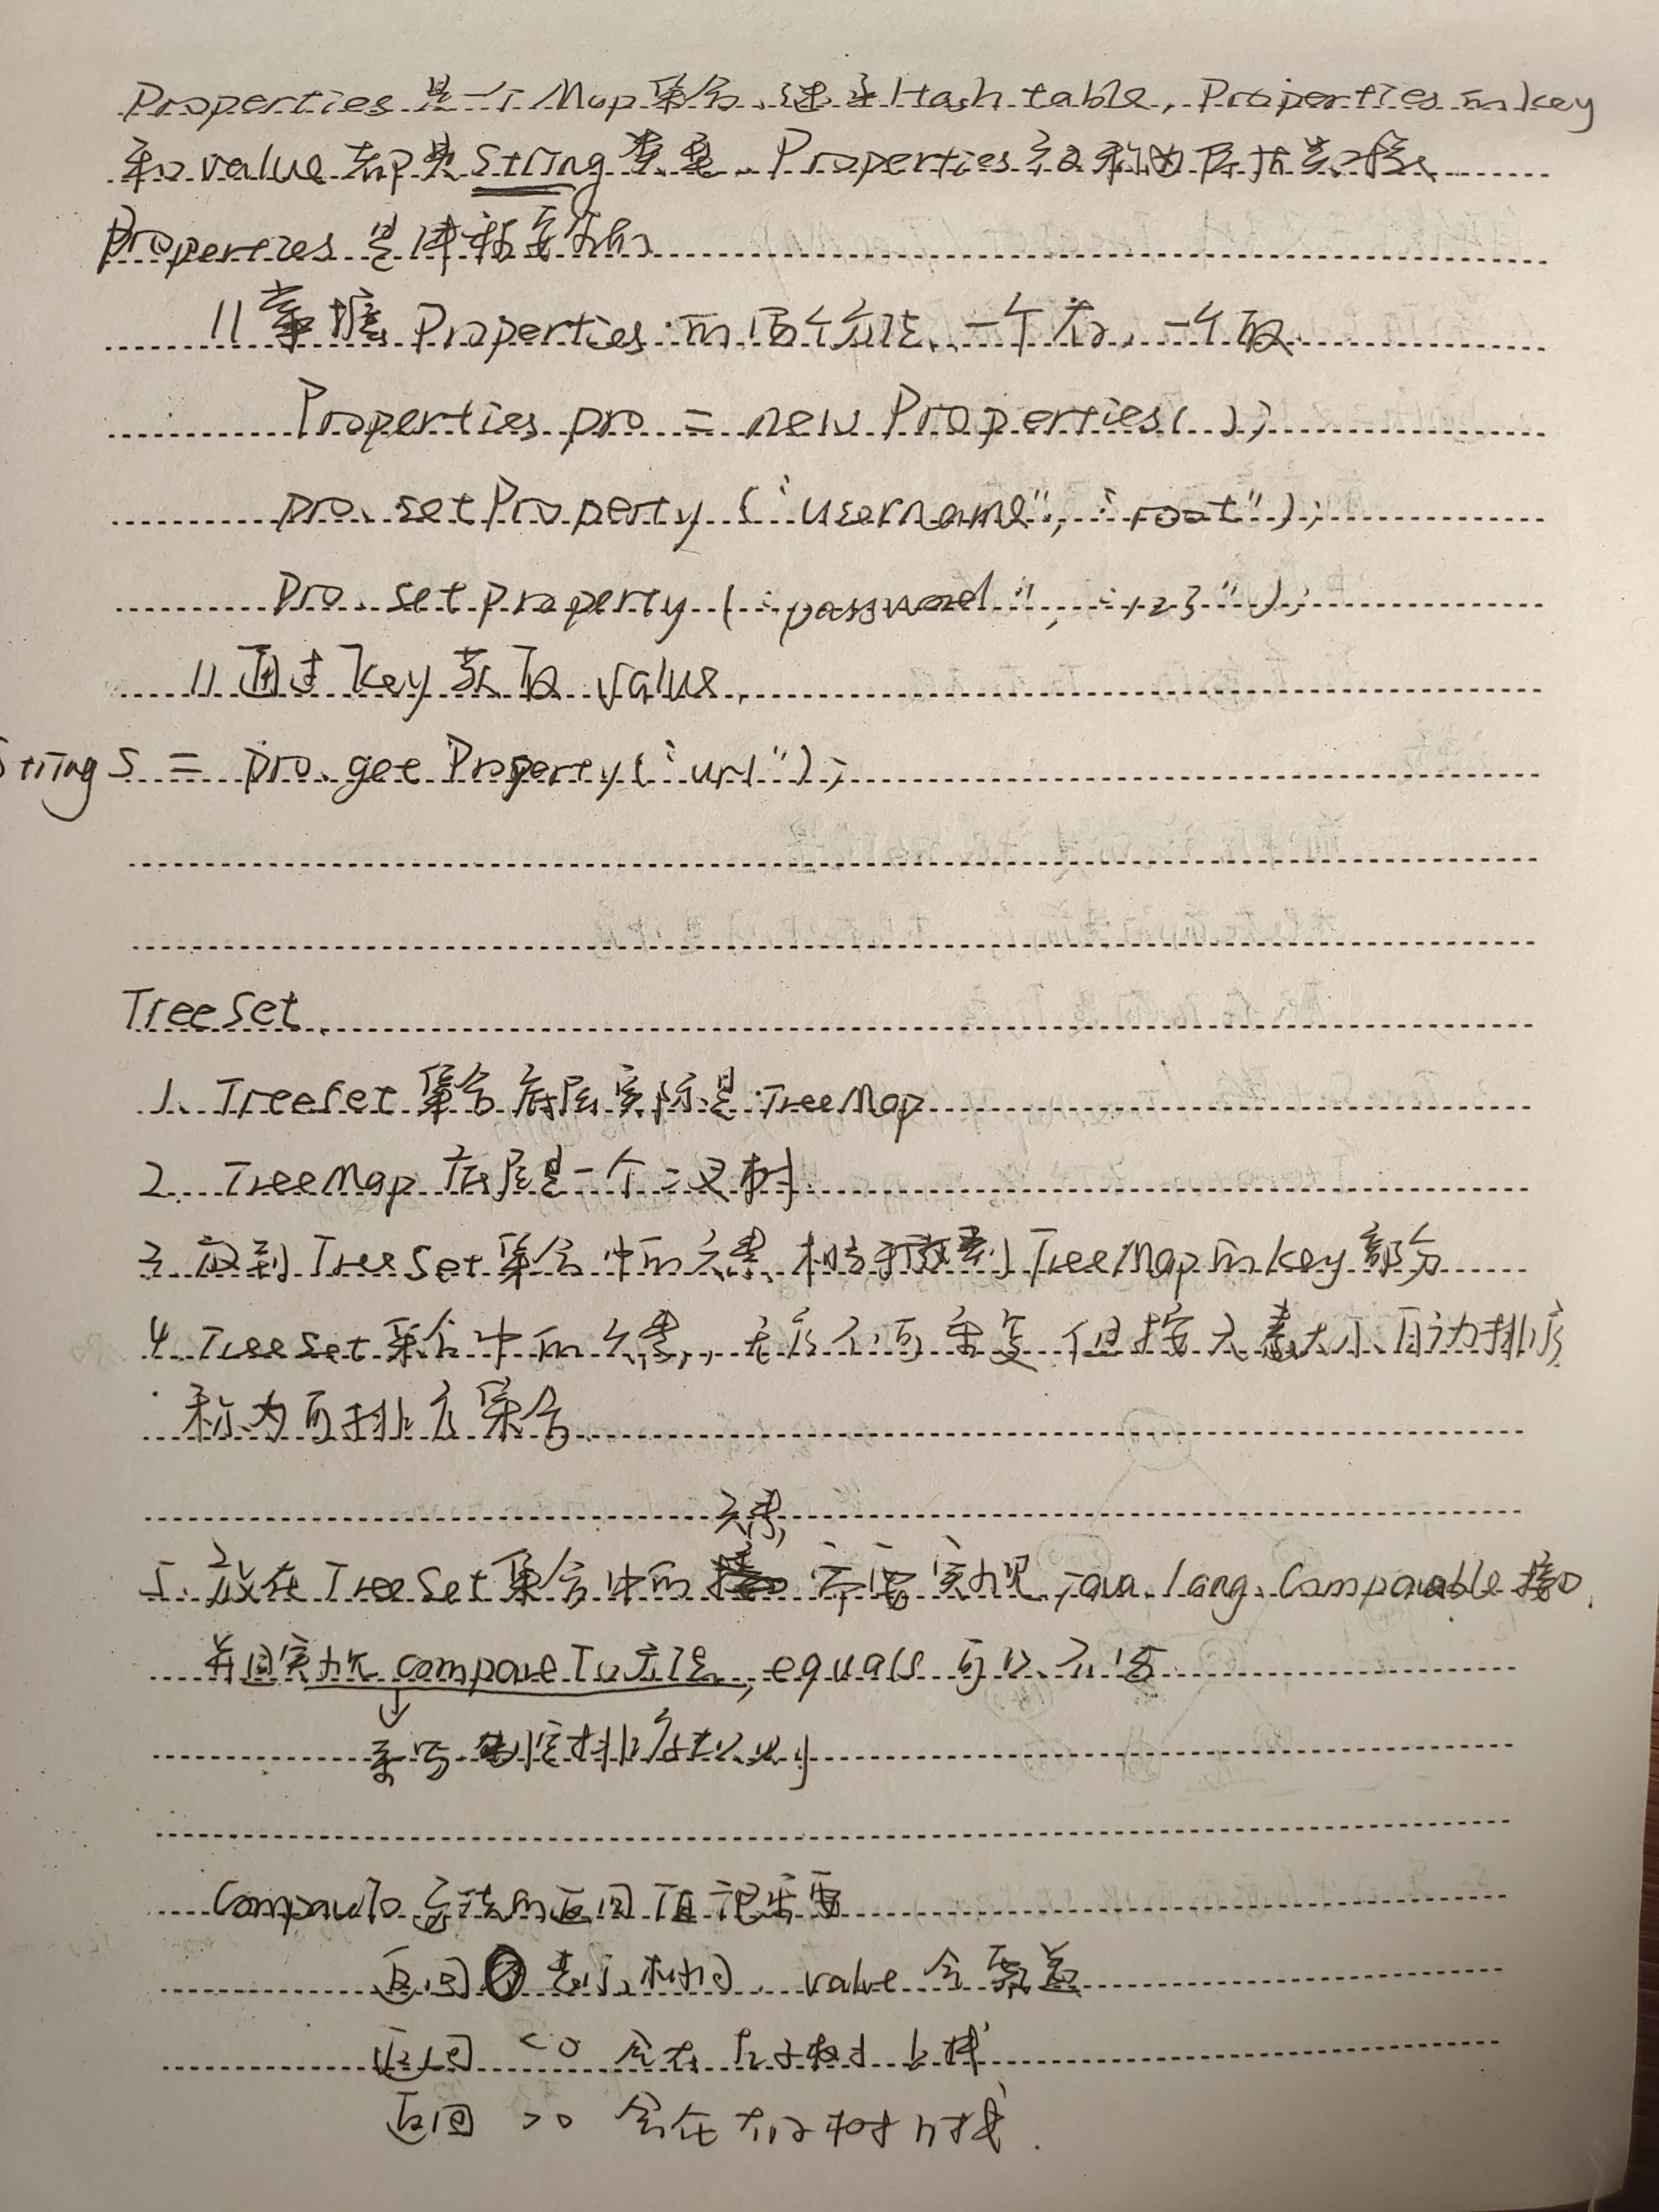 Properties是一个Map集合、继承Hashtable, Properties的key
和value都是String类型、Properties被称为属性类对象、
Properties是线程安全的
//掌握Properties的两个方法、一个存、一个取
Properties pro = new Properties();
pro.setProperty("username", "root");
pro.setProperty("password", "123");
//通过key获取value
String s = pro.getProperty("url");
TreeSet
1、TreeSet集合底层实际是TreeMap
2、TreeMap底层是一个二叉树
3、放到TreeSet集合中的元素,相当于放到TreeMap的key部分
4、TreeSet集合中的元素,无序不可重复,但按元素大小自动排序
称为可排序集合
元素
5、放在TreeSet集合中的 需要实现java.lang.Comparable接口,
并且实现compareTo方法,equals可以不写
↓
重写 制定排序规则
CompareTo方法的返回值很重要
返回0表示相同,value会覆盖
返回 <0 会在左子树上找
返回 >0 会在右子树上找.